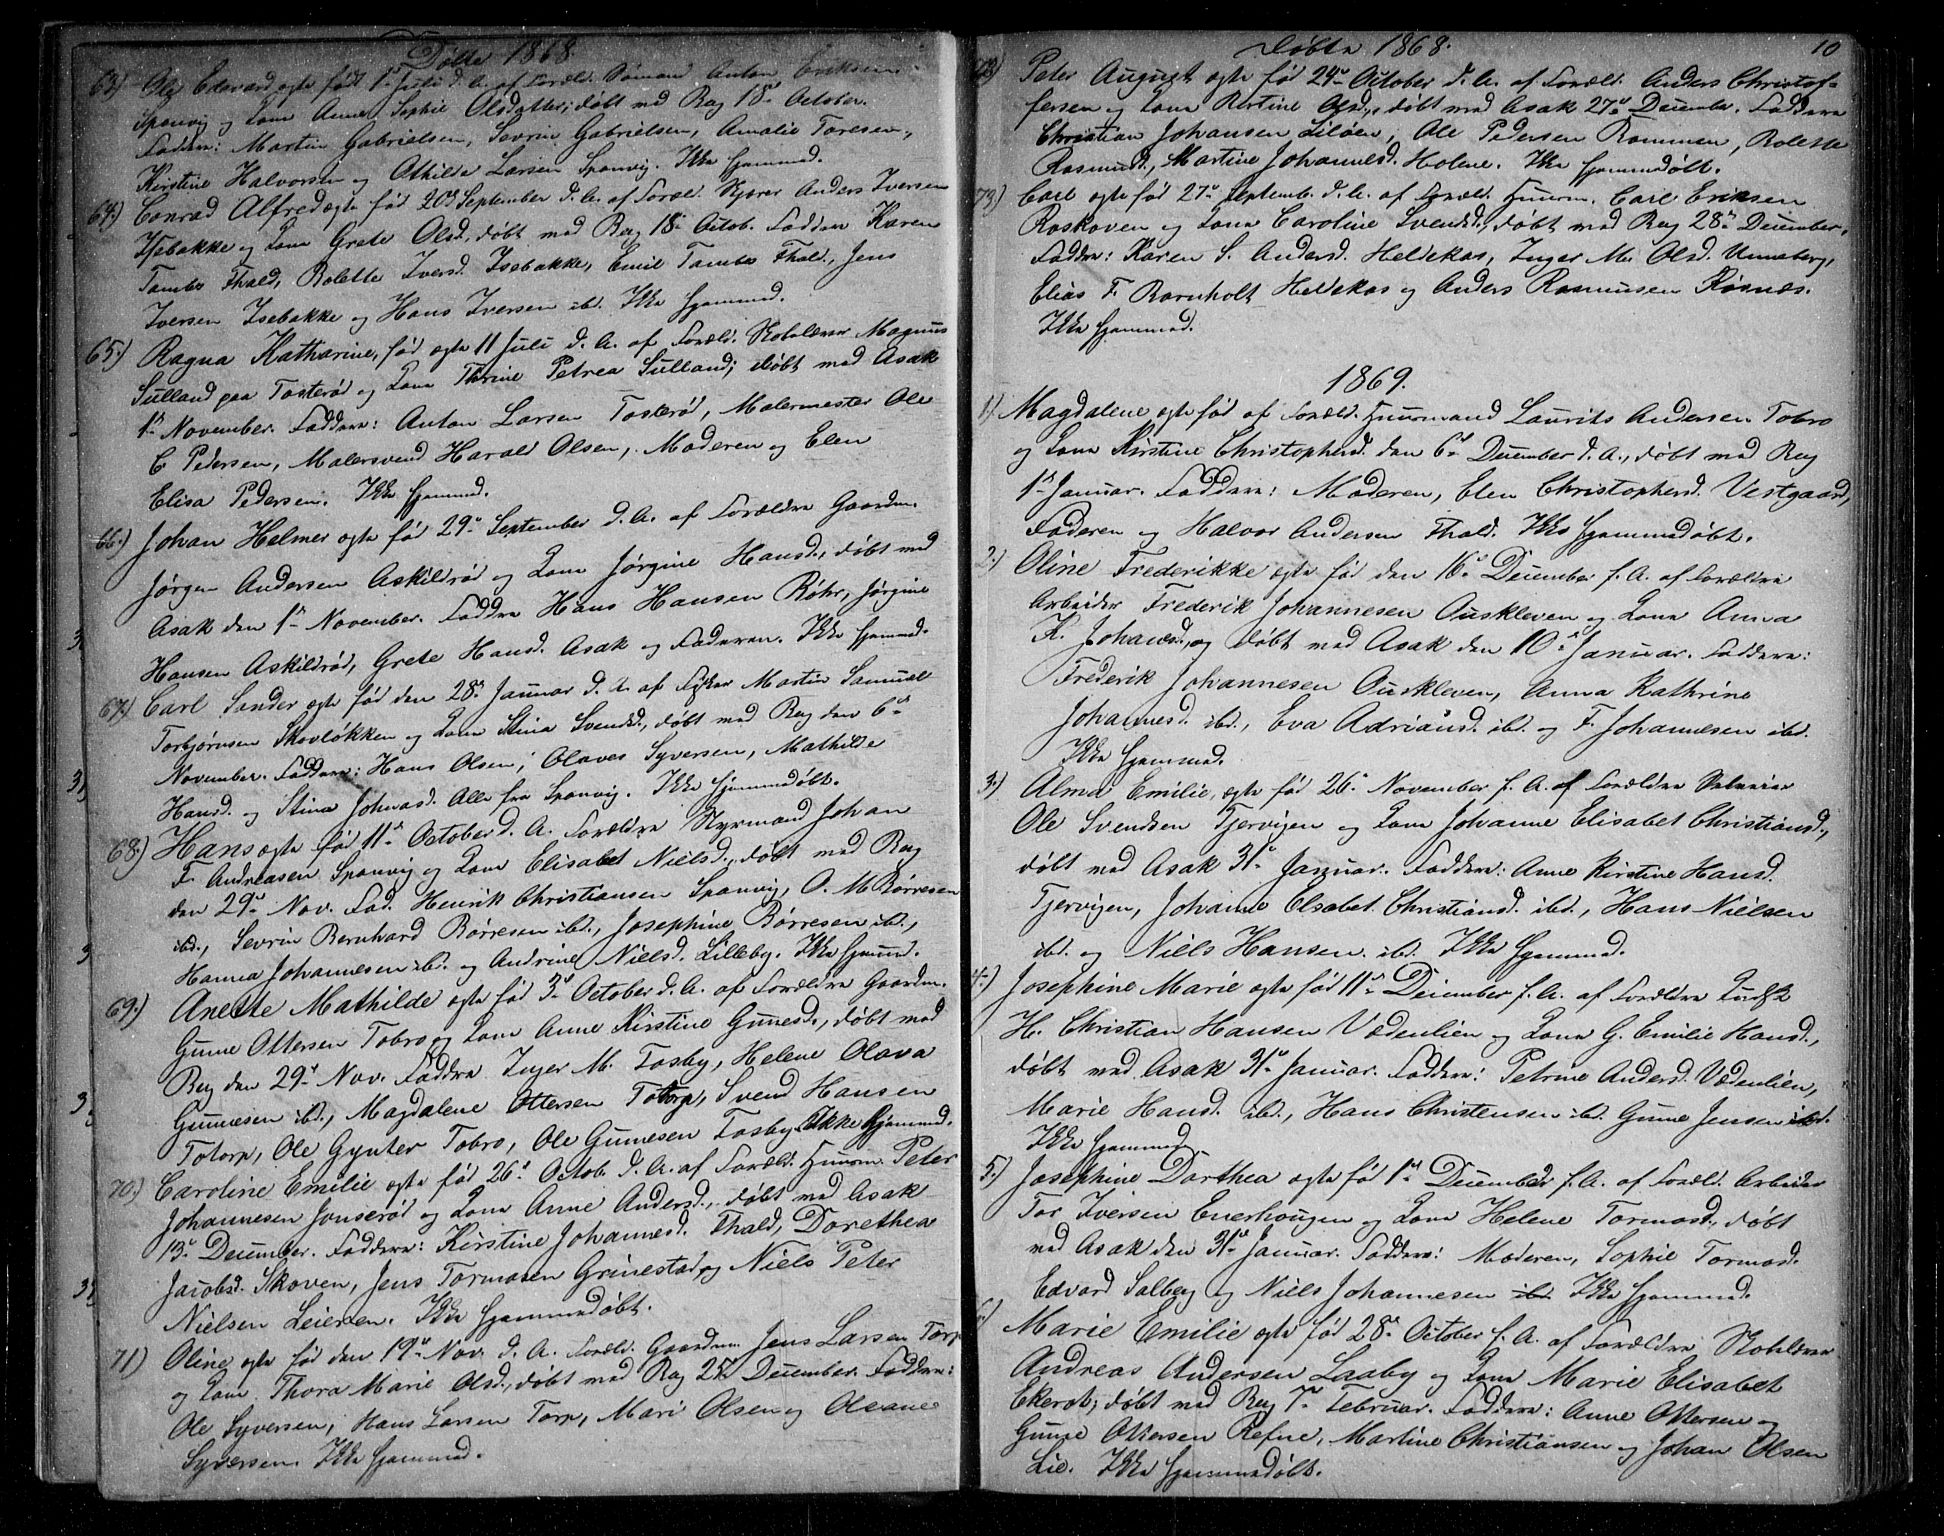 Døbte 1868.
63) Ole Edevard ægte fød 1ste Juli d. A. af Foræld. Sømand Anton Eriksen
Sponvig og Kone Anne Sophie Olsdatter; døbt ved Bag 18de October.
Faddere: Martin Gabrielsen, Sevrin Gabrielsen, Amalie Toresen,
Kirstine Halvorsen og Othilde Larsen Sponvig. Ikke hjemmed.
64.) Conrad Alfred ægte fød 20de September d. A. af Foræld. Skrær Anders Iversen
Isebakke og Kone Grete Olsd., døbt ved Bag 18de Octob. Faddere Karen
Tambs Fhald, Bolette Iversd. Isebakke, Emil Tambs Fhald, Jens
Iversen Isebakke og Hans Iversen ibd. Ikke hjemmed.
65.) Ragna Katharine, fød ægte 11 Juli d. A. af Foræld. Skolelærer Magnus
Sulland paa Tosterød og Kone Thrine Petrea Sulland; døbt ved Asak
1ste November. Faddere: Anton Larsen Tosterød, Malermester Ole
C. Pedersen, Malersvend Harald Olsen, Moderen og Elen
Elisa Pedersen. Ikke hjemmed.
66.) Johan Helmer ægte fød 29de September d. A. af Forældre Gaardm.
Jørgen Andersen Askildrød og Kone Jørgine Hansd., døbt ved
Asak den 1ste November. Faddere Hans Hansen Røhr, Jørgine
Hansen Askildrød, Grete Hansd. Asak og Faderen. Ikke hjemmed.
67.) Carl Sander ægte fød den 28de Januar d. A. af Fisker Martin Samuel
Torbjørnsen Skovløkken og Kone Stina Svendsd., døbt ved Bag den 6te
November. Faddere: Hans Olsen, Olaves Syversen, Mathilde
Hansd. og Stina Johnasd. Alle fra Sponvig. Ikke hjemmedøbt.
68.) Hans ægte fød 11te October d. A. Forældre Styrmand Johan
F. Andreasen Sponvig og Kone Elisabet Nielsd., døbt ved Bag
den 29de Nov. Fad. Henrik Christiansen Sponvig, O. M. Børresen
ibd., Sevrin Bernhard Børresen ibd., Josephine Børresen ibd.,
Hanna Johannesen ibd. og Andrine Nielsd. Lilleby. Ikke hjemmd.
69.) Anette Mathilde ægte fød 3de October d. A. af Forældre Gaardm.
Gunne Ottersen Tobro og Kone Anne Kirstine Gunesd., døbt ved
Bag den 29de Nov. Faddere Inger M. Fosby, Helene Olava
Gunnesen ibd., Magdalene Ottersen Totorp, Svend Hansen
Totorp, Ole Gynter Tobro, Ole Gunnesen Fosby. Ikke hjemmed.
70.) Caroline Emilie ægte fød 26de Octob. d. A. af Foræld. Huusm. Peter
Johannesen Jonserød og Kone Anne Andersd., døbt ved Asak
13de December. Faddere: Kirstine Johannesd. Fhald, Dorethea
Jacobsd. Skoven, Jens Tormosen Grinestad, og Niels Peter
Nielsen Leieren. Ikke hjemmedøbt.
71) Oline, ægte fød den 19de Nov. d. A. Foræld. Gaardm. Jens Larsen Torp
og Kone Thora Marie Olsd., døbt ved Bag 27de December. Faddere:
Ole Syversen, Hans Larsen Torp, Mari Olsen og Oleane
Syversen. Ikke hjemmed.
Døbte 1868. 10
Peter August ægte fød 24de October d. A. af Foræld. Anders Christof-
fersen og Kone Kirstine Olsd., døbt ved Asak 27de December. Faddere
Christian Johansen Liløen, Ole Pedersen Rommen, Bolette
Rasmusd., Martine Johannesd. Holene. Ikke hjemmedøbt.
73) Carl ægte fød 27de Septemb. d. A. af Foræld. Huusm. Carl Eriksen
Roskoven og Kone Caroline Svendsd., døbt ved Bag 28de December.
Faddere: Karen S. Andersd. Heldekas, Inger M. Olsd. Unneberg,
Elias F. Barnholt Heldekas og Anders Rasmusen Røsnæs.
Ikke hjemmed.
1869.
1) Magdalene ægte fød af Foræld. Huusmand Laurits Andersen Tobro
og Kone Kirstine Christophersd. den 6te December d. A., døbt ved Bag
1ste Januar. Faddere: Moderen, Elen Christophersd. Vestgaard,
Faderen og Halvor Andersen Fhald. Ikke hjemmedøbt.
2.) Oline Frederikke ægte fød den 16de December f. A. af Forældre
Arbeider Frederik Johannesen Ouskleven og Kone Anna
K. Johansd., og døbt ved Asak den 10de Januar. Faddere:
Frederik Johannesen Ouskleven, Anna Kathrine
Johannesd. ibd., Eva Adriansd. ibd. og F. Johannesen ibd.
Ikke hjemmed.
3.) Alma Emilie, ægte fød 26de November f. A. af Forældre
Ole Svendsen Tjervigen og Kone Johanne Elisabet Christiansd.,
døbt ved Asak 31te Januar. Faddere: Anne Kirstine Hansd.
Tjervigen, Johanne Elsabet Christiansd. ibd., Hans Nielsen
ibd. og Niels Hansen ibd. Ikke hjemmed.
4.) Josephine Marie ægte fød 11te December f. A. af Forældre
H. Christian Hansen Vedenlien og Kone G. Emilie Hansd.,
døbt ved Asak 31te Januar. Faddere: Petrine Andersd. Vedenlien,
Marie Hansd. ibd., Hans Christensen ibd. Gunne Jensen ibd.
Ikke hjemmed
5.) Josephine Dorthea ægte fød 1ste December f. A. af Foræld. Arbeider
Tor Iversen Enerhougen og Kone Helene Tormosd., døbt
ved Asak den 31te Januar. Faddere: Moderen, Sophie Tormosd.
Edvard Solberg og Niels Johannesen ibd Ikke hjemmed.
Marie Emilie ægte fød 28de October f. A. af Forældre Skolelærer
Andreas Andersen Laaby og Kone Marie Elisabet
Ekerot, døbt ved Bag 7de Februar. Faddere: Anne Ottersen og
Gunne Ottersen Refne, Martine Christiansen og Johan Olsen
Lie. Ikke hjemmedøbt.